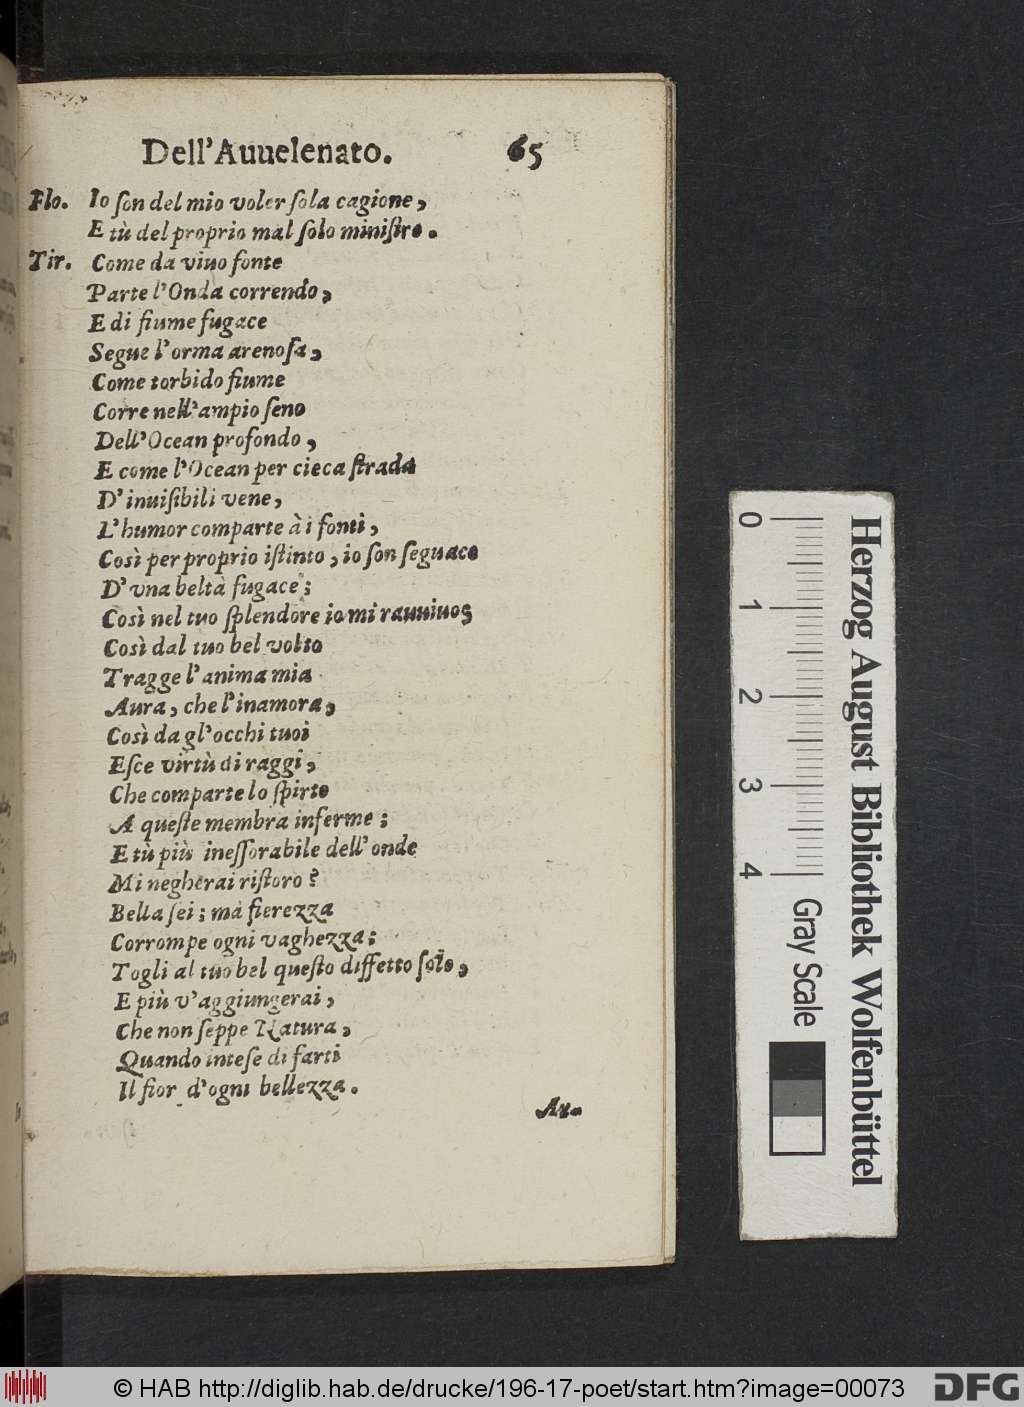 Dell'Auuelenato. 65
Flo. Io ſon del mio voler ſola cagione,
E tù del proprio mal ſolo miniſtro.
Tir. Come da viuo fonte
Parte l'Onda correndo,
E di fiume fugace
Segue l'orma arenoſa,
Come torbido fiume
Corre nell'ampio ſeno
Dell'Ocean profondo,
E come l'Ocean per cieca ſtrada
D'inuiſibili vene,
L'humor comparte à i fonti,
Così per proprio iſtinto, io ſon ſeguace
D'vna beltà fugace;
Così nel tuo ſplendore io mi rauuiuo;
Così dal tuo bel volto
Tragge l'anima mia
Aura, che l'inamora,
Così da gl'occhi tuoi
Eſce virtù di raggi,
Che comparte lo ſpirto
A queſte membra inferme;
E tù più ineſſorabile dell'onde
Mi negherai riſtoro?
Bella ſei; mà fierezza
Corrompe ogni vaghezza;
Togli al tuo bel queſto diffetto ſolo,
E più v'aggiungerai,
Che non ſeppe Natura,
Quando inteſe di farti
Il fior d'ogni bellezza.
Au-
0 1 2 3 4
Gray Scale
Herzog August Bibliothek Wolfenbüttel
© HAB http://diglib.hab.de/drucke/196-17-poet/start.htm?image=00073
DFG